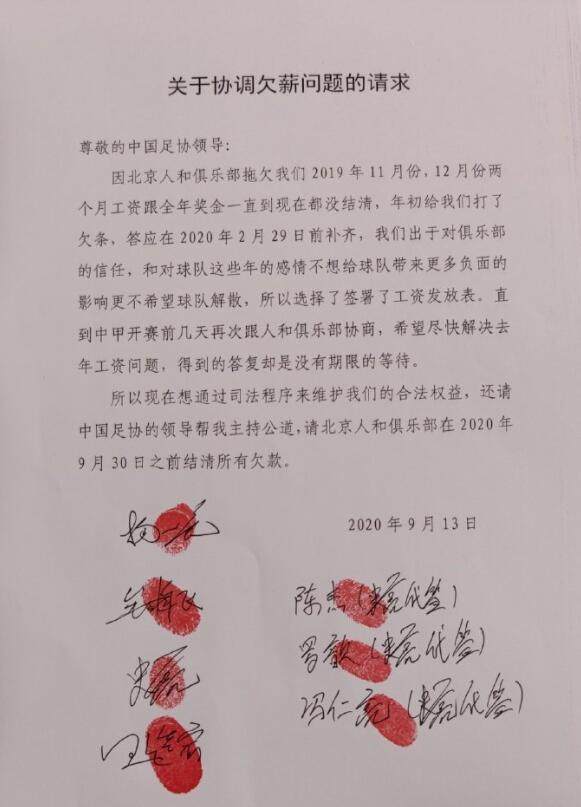 关于协调欠薪问题的请求
尊敬的中国足协领导：
因北京人和俱乐部拖欠我们2019年11月份，12月份两
个月工资跟全年奖金一直到现在都没结清，年初给我们打了
欠条，答应在2020年2月29日前补齐，我们出于对俱乐部
的信任，和对球队这些年的感情不想给球队带来更多负面的
影响更不希望球队解散，所以选择了签署了工资发放表。直
到中甲开赛前几天再次跟人和俱乐部协商，希望尽快解决去
年工资问题，得到的答复却是没有期限的等待。
所以现在想通过司法程序来维护我们的合法权益，还请
中国足协的领导帮我主持公道，请北京人和俱乐部在2020年
9月30日之前结清所有欠款。
2020年9月13日
陈杰（史亮代签）
罗歆（史亮代签）
史亮
冯仁亮（史亮代签）